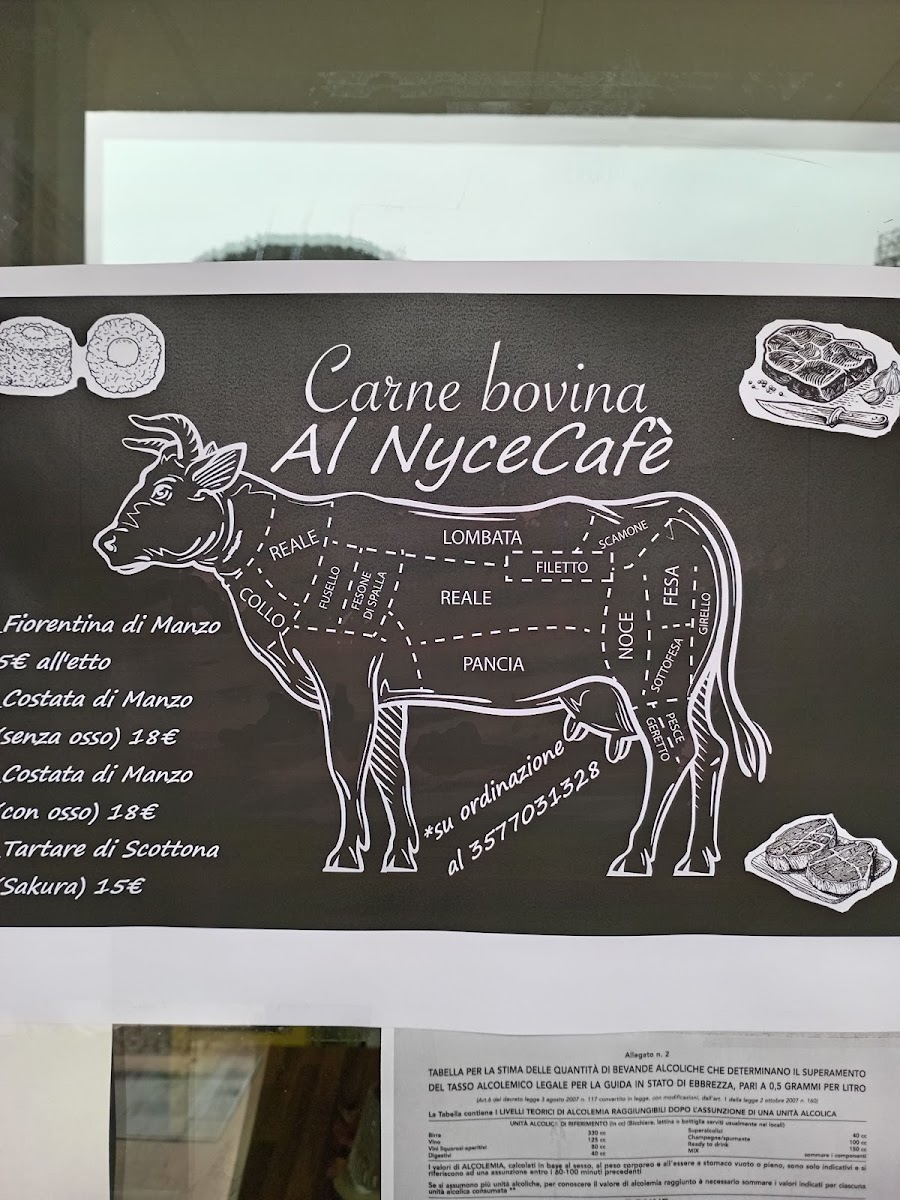 Carne bovina
Al NyceCafè
REALE
LOMBATA
SCAMONE
FILETTO
FUSELLO
FESONE
DI SPALLA
COLLO
REALE
NOCE
FESA
GIRELLO
SOTTOFESA
PANCIA
GERETTO
PESCE
Fiorentina di Manzo
5€ all'etto
Costata di Manzo
(senza osso) 18€
Costata di Manzo
(con osso) 18€
Tartare di Scottona
(Sakura) 15€
*su ordinazione
al 3577031328
Allegato n. 2
TABELLA PER LA STIMA DELLE QUANTITÀ DI BEVANDE ALCOLICHE CHE DETERMINANO IL SUPERAMENTO
DEL TASSO ALCOLEMICO LEGALE PER LA GUIDA IN STATO DI EBBREZZA, PARI A 0,5 GRAMMI PER LITRO
(Art.6 del decreto legge 3 agosto 2007 n. 117 convertito in legge, con modificazioni, dall'art. 1 della legge 2 ottobre 2007 n. 160)
La Tabella contiene I LIVELLI TEORICI DI ALCOLEMIA RAGGIUNGIBILI DOPO L'ASSUNZIONE DI UNA UNITÀ ALCOLICA
UNITÀ ALCOLICA DI RIFERIMENTO (in cc) (Bicchiere, lattina o bottiglia serviti usualmente nei locali)
Birra 330 cc Superalcolici 40 cc
Vino 125 cc Champagne/spumante 100 cc
Vini liquorosi-aperitivi 80 cc Ready to drink 150 cc
Digestivi 40 cc MIX sommare i componenti
I valori di ALCOLEMIA, calcolati in base al sesso, al peso corporeo e all'essere a stomaco vuoto o pieno, sono solo indicativi e si
riferiscono ad una assunzione entro i 60-100 minuti precedenti
Se si assumono più unità alcoliche, per conoscere il valore di alcolemia raggiunto è necessario sommare i valori indicati per ciascuna
unità alcolica consumata **